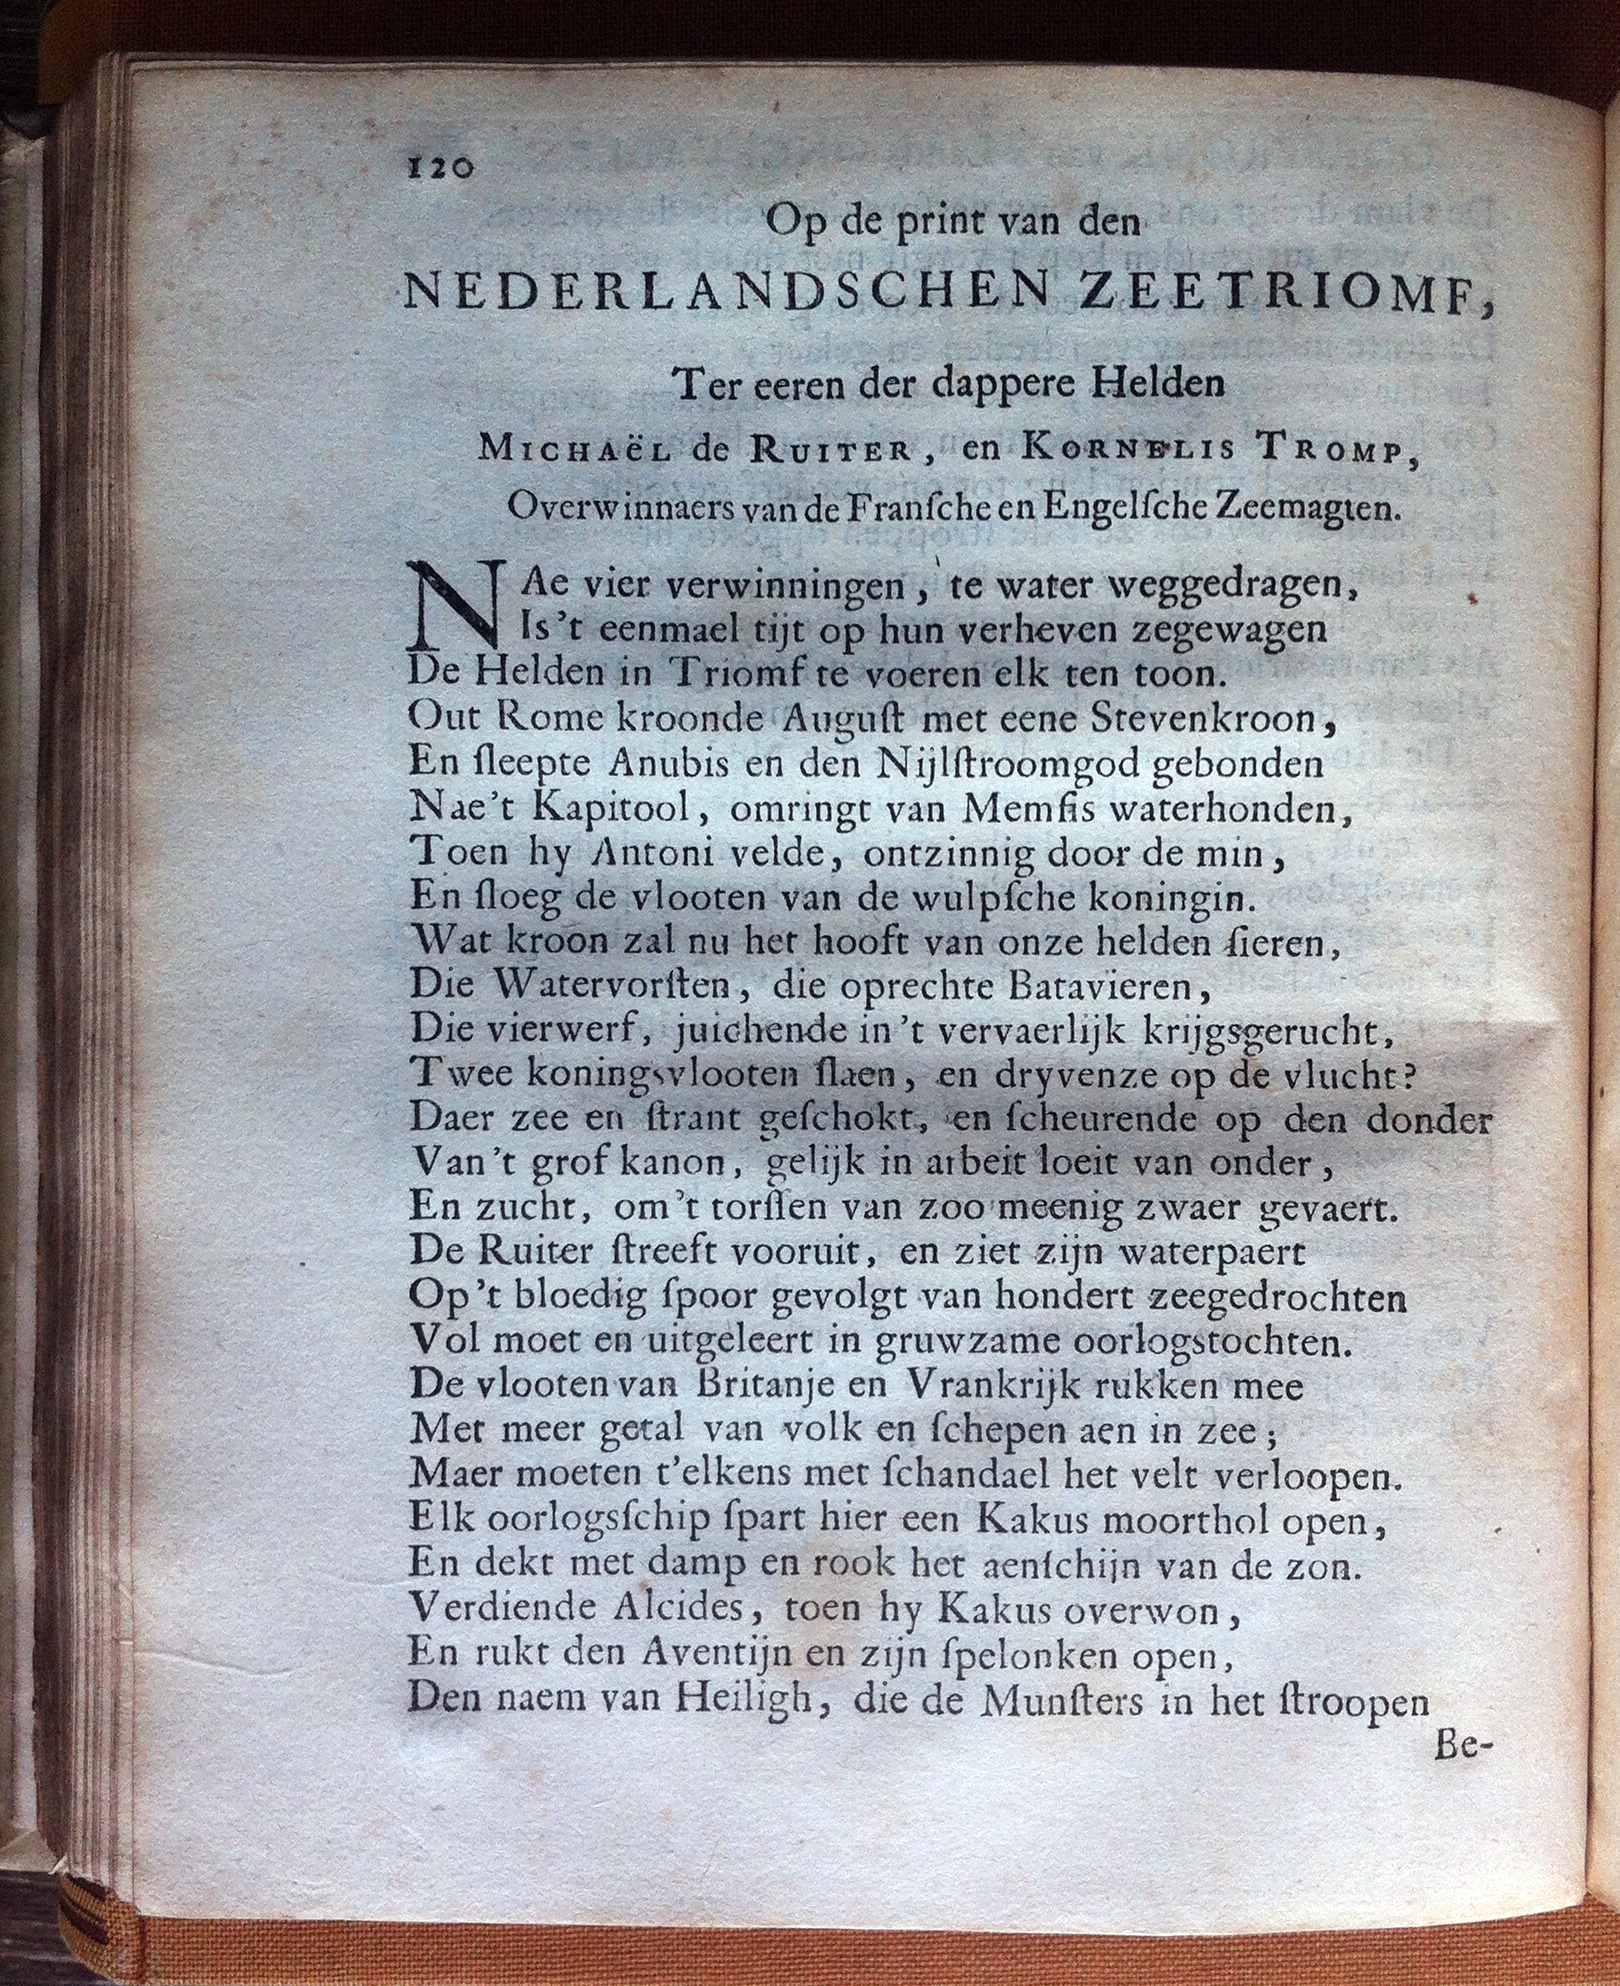 120
Op de print van den
NEDERLANDSCHEN ZEETRIOMF,
Ter eeren der dappere Helden
MICHAëL de RUITER, en KORNELIS TROMP,
Overwinnaers van de Franſche en Engelſche Zeemagten.
NAe vier verwinningen, te water weggedragen,
Is't eenmael tijt op hun verheven zegewagen
De Helden in Triomf te voeren elk ten toon.
Out Rome kroonde Auguſt met eene Stevenkroon,
En ſleepte Anubis en den Nijlſtroomgod gebonden
Nae't Kapitool, omringt van Memfis waterhonden,
Toen hy Antoni velde, ontzinnig door de min,
En ſloeg de vlooten van de wulpſche koningin.
Wat kroon zal nu het hooft van onze helden ſieren,
Die Watervorſten, die oprechte Batavieren,
Die vierwerf, juichende in 't vervaerlijk krijgsgerucht,
Twee koningsvlooten ſlaen, en dryvenze op de vlucht?
Daer zee en ſtrant geſchokt, en ſcheurende op den donder
Van 't grof kanon, gelijk in arbeit loeit van onder,
En zucht, om 't torſſen van zoo meenig zwaer gevaert.
De Ruiter ſtreeft vooruit, en ziet zijn waterpaert
Op 't bloedig ſpoor gevolgt van hondert zeegedrochten
Vol moet en uitgeleert in gruwzame oorlogstochten.
De vlooten van Britanje en Vrankrijk rukken mee
Met meer getal van volk en ſchepen aen in zee;
Maer moeten t'elkens met ſchandael het velt verloopen.
Elk oorlogsſchip ſpart hier een Kakus moorthol open,
En dekt met damp en rook het aenſchijn van de zon.
Verdiende Alcides, toen hy Kakus overwon,
En rukt den Aventijn en zijn ſpelonken open,
Den naem van Heiligh, die de Munſters in het ſtroopen
Be-